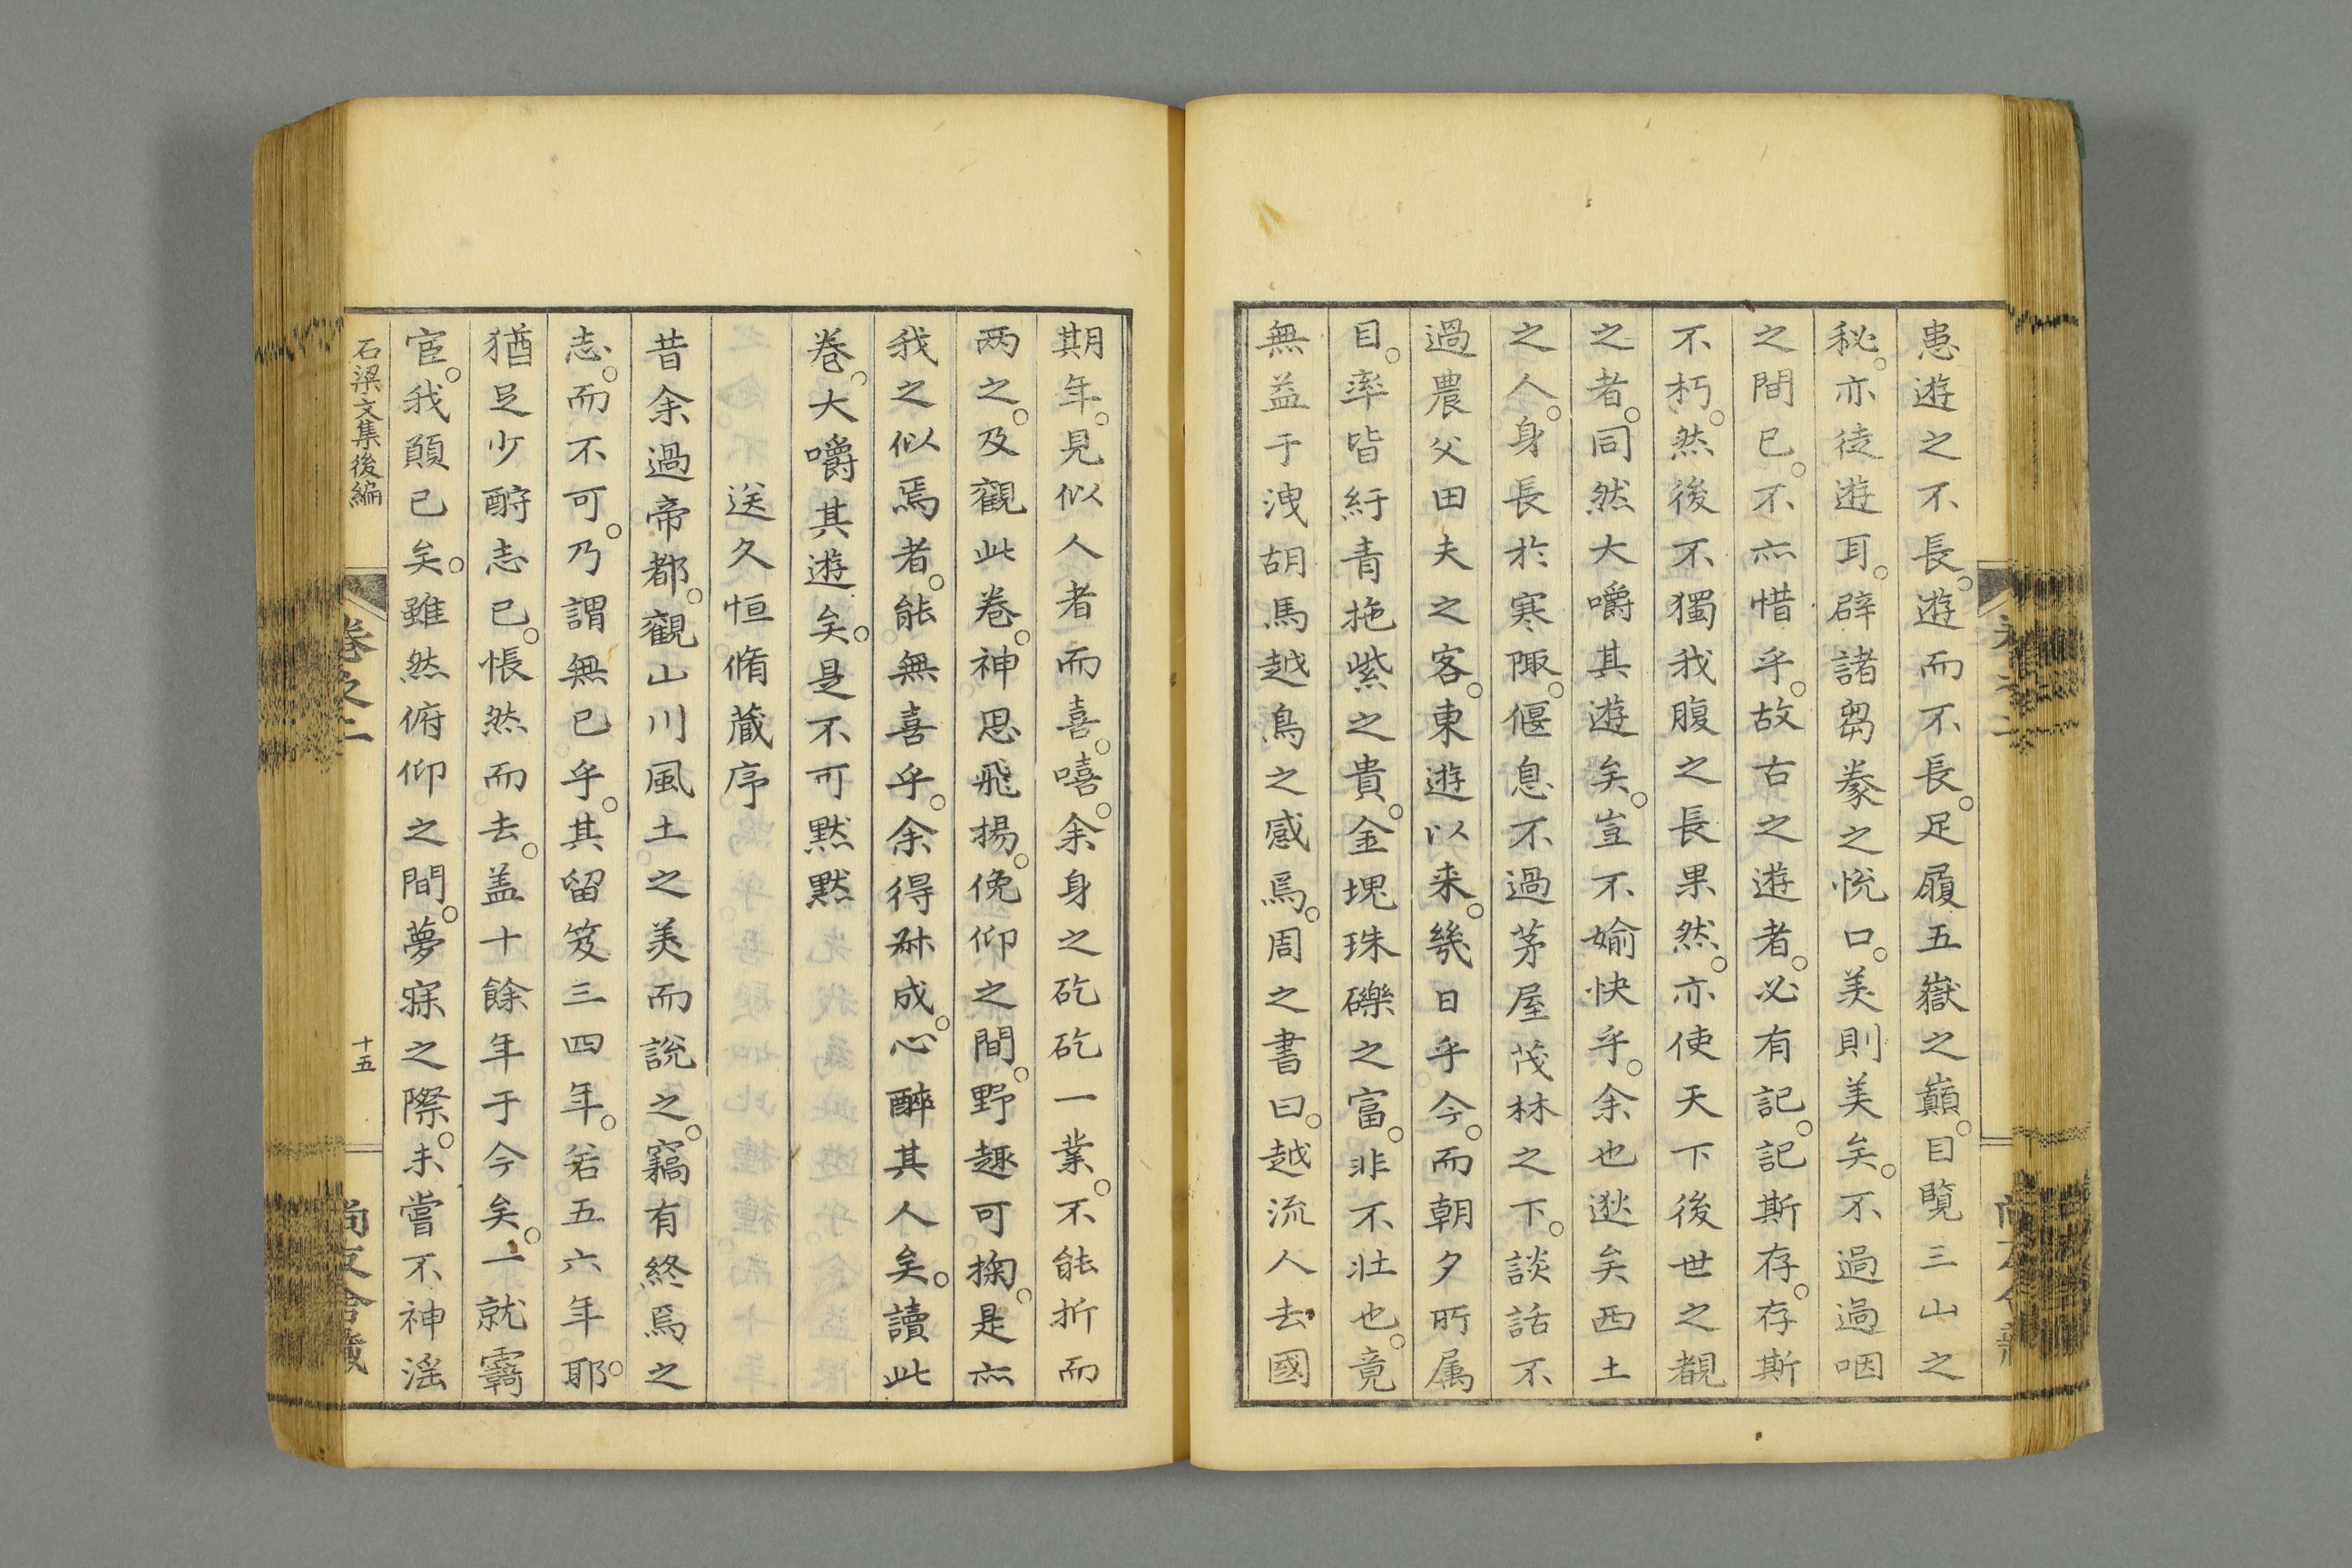 患遊之不長。遊而不長。足履五嶽之巓。目覧三山之
秘。亦徒遊耳。辟諸芻豢之悦口。美則美矣。不過過咽
之間已。不亦惜乎。故古之遊者。必有記。記斯存。存斯
不朽。然後不獨我腹之長果然。亦使天下後世之覩
之者。同然大嚼其遊矣。豈不媮快乎。余也逖矣西土
之人。身長於寒陬。偃息不過茅屋茂林之下。談話不
過農父田夫之客。東遊以来。幾日乎今。而朝夕所属
目。率皆紆青拖紫之貴。金塊珠礫之富。非不壮也。竟
無益于洩胡馬越鳥之感焉。周之書曰。越流人去國
期年。見似人者而喜。嘻。余身之矻矻一業。不能折而
两之。及觀此巻。神思飛揚。俛仰之間。野趣可掬。是亦
我之似焉者。能無喜乎。余得癖成。心醉其人矣。讀此
巻。大嚼其遊矣。是不可黙黙
送久恒脩蔵序
昔余過帝都。觀山川風土之美而説之。竊有終焉之
志。而不可。乃謂無已乎。其留笈三四年。若五六年耶。
猶足少酧志已。悵然而去。盖十餘年于今矣。一就覊
宦。我願已矣。雖然俯仰之間。夢寐之際。未嘗不神滛
石梁文集後編
巻之二
十五
尚友舎蔵